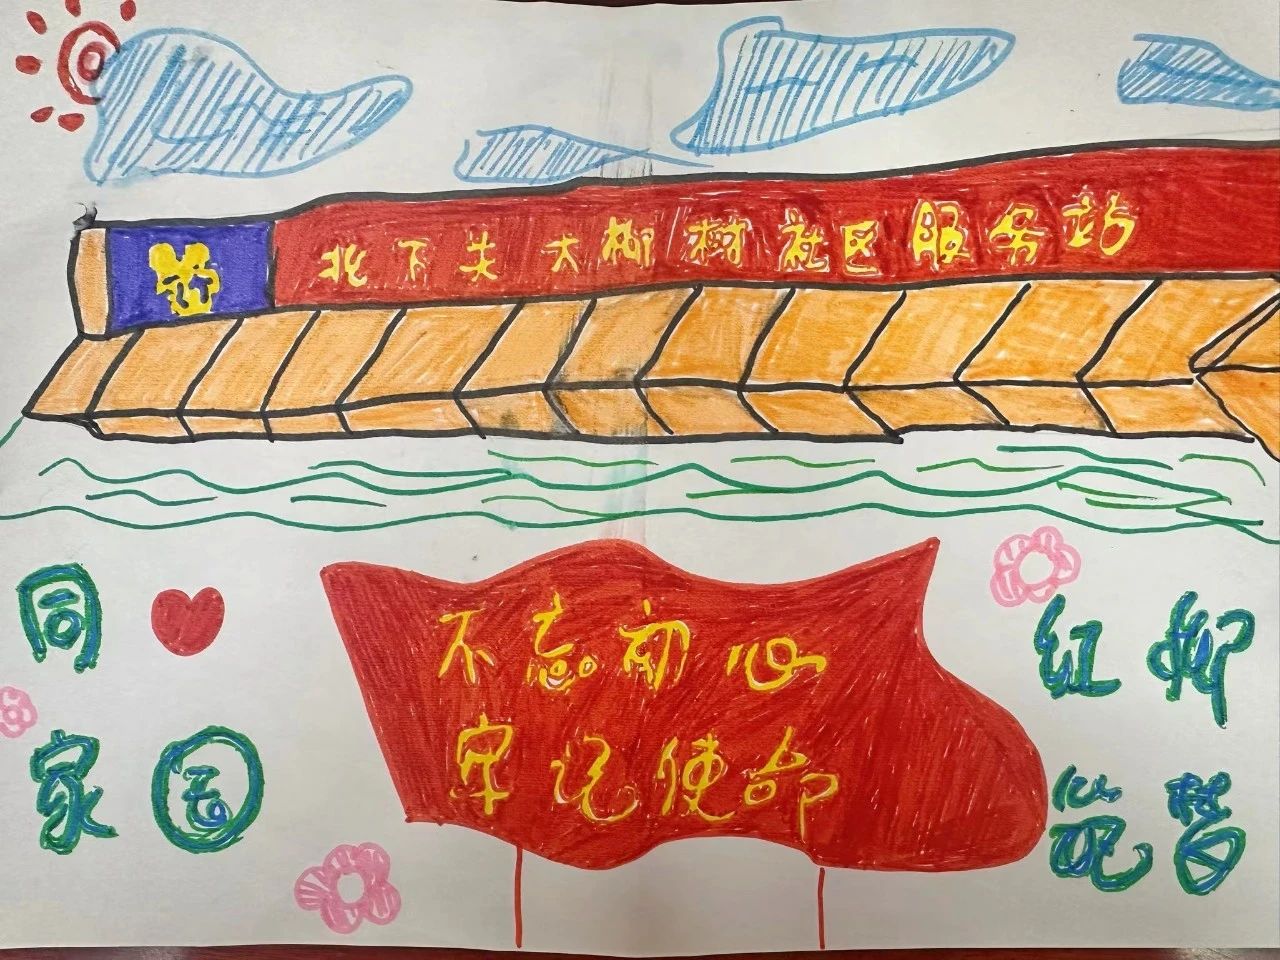 北下关大柳树社区服务站
不忘初心
牢记使命
同
家国
红柳
筑梦